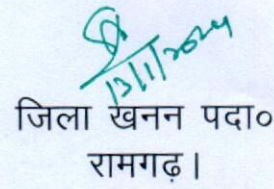 13/1/2024
जिला खनन पदा०
रामगढ़।